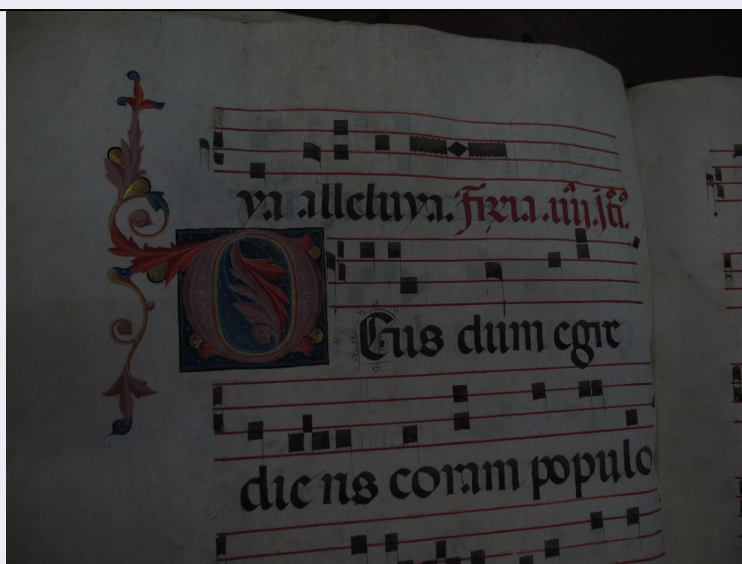 ya alleluya. Feria .iiij. sc̄i.
DEus dum egre
diens coram populo